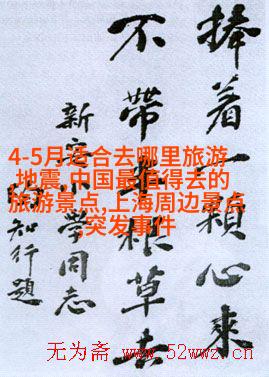 捧着一顆心來
不帶半根草去
新安小學同志
陶知行題
4-5月适合去哪里旅游
,地震,中国最值得去的
旅游景点,上海周边景点
,突发事件
无为斋 www.52wwz.cn